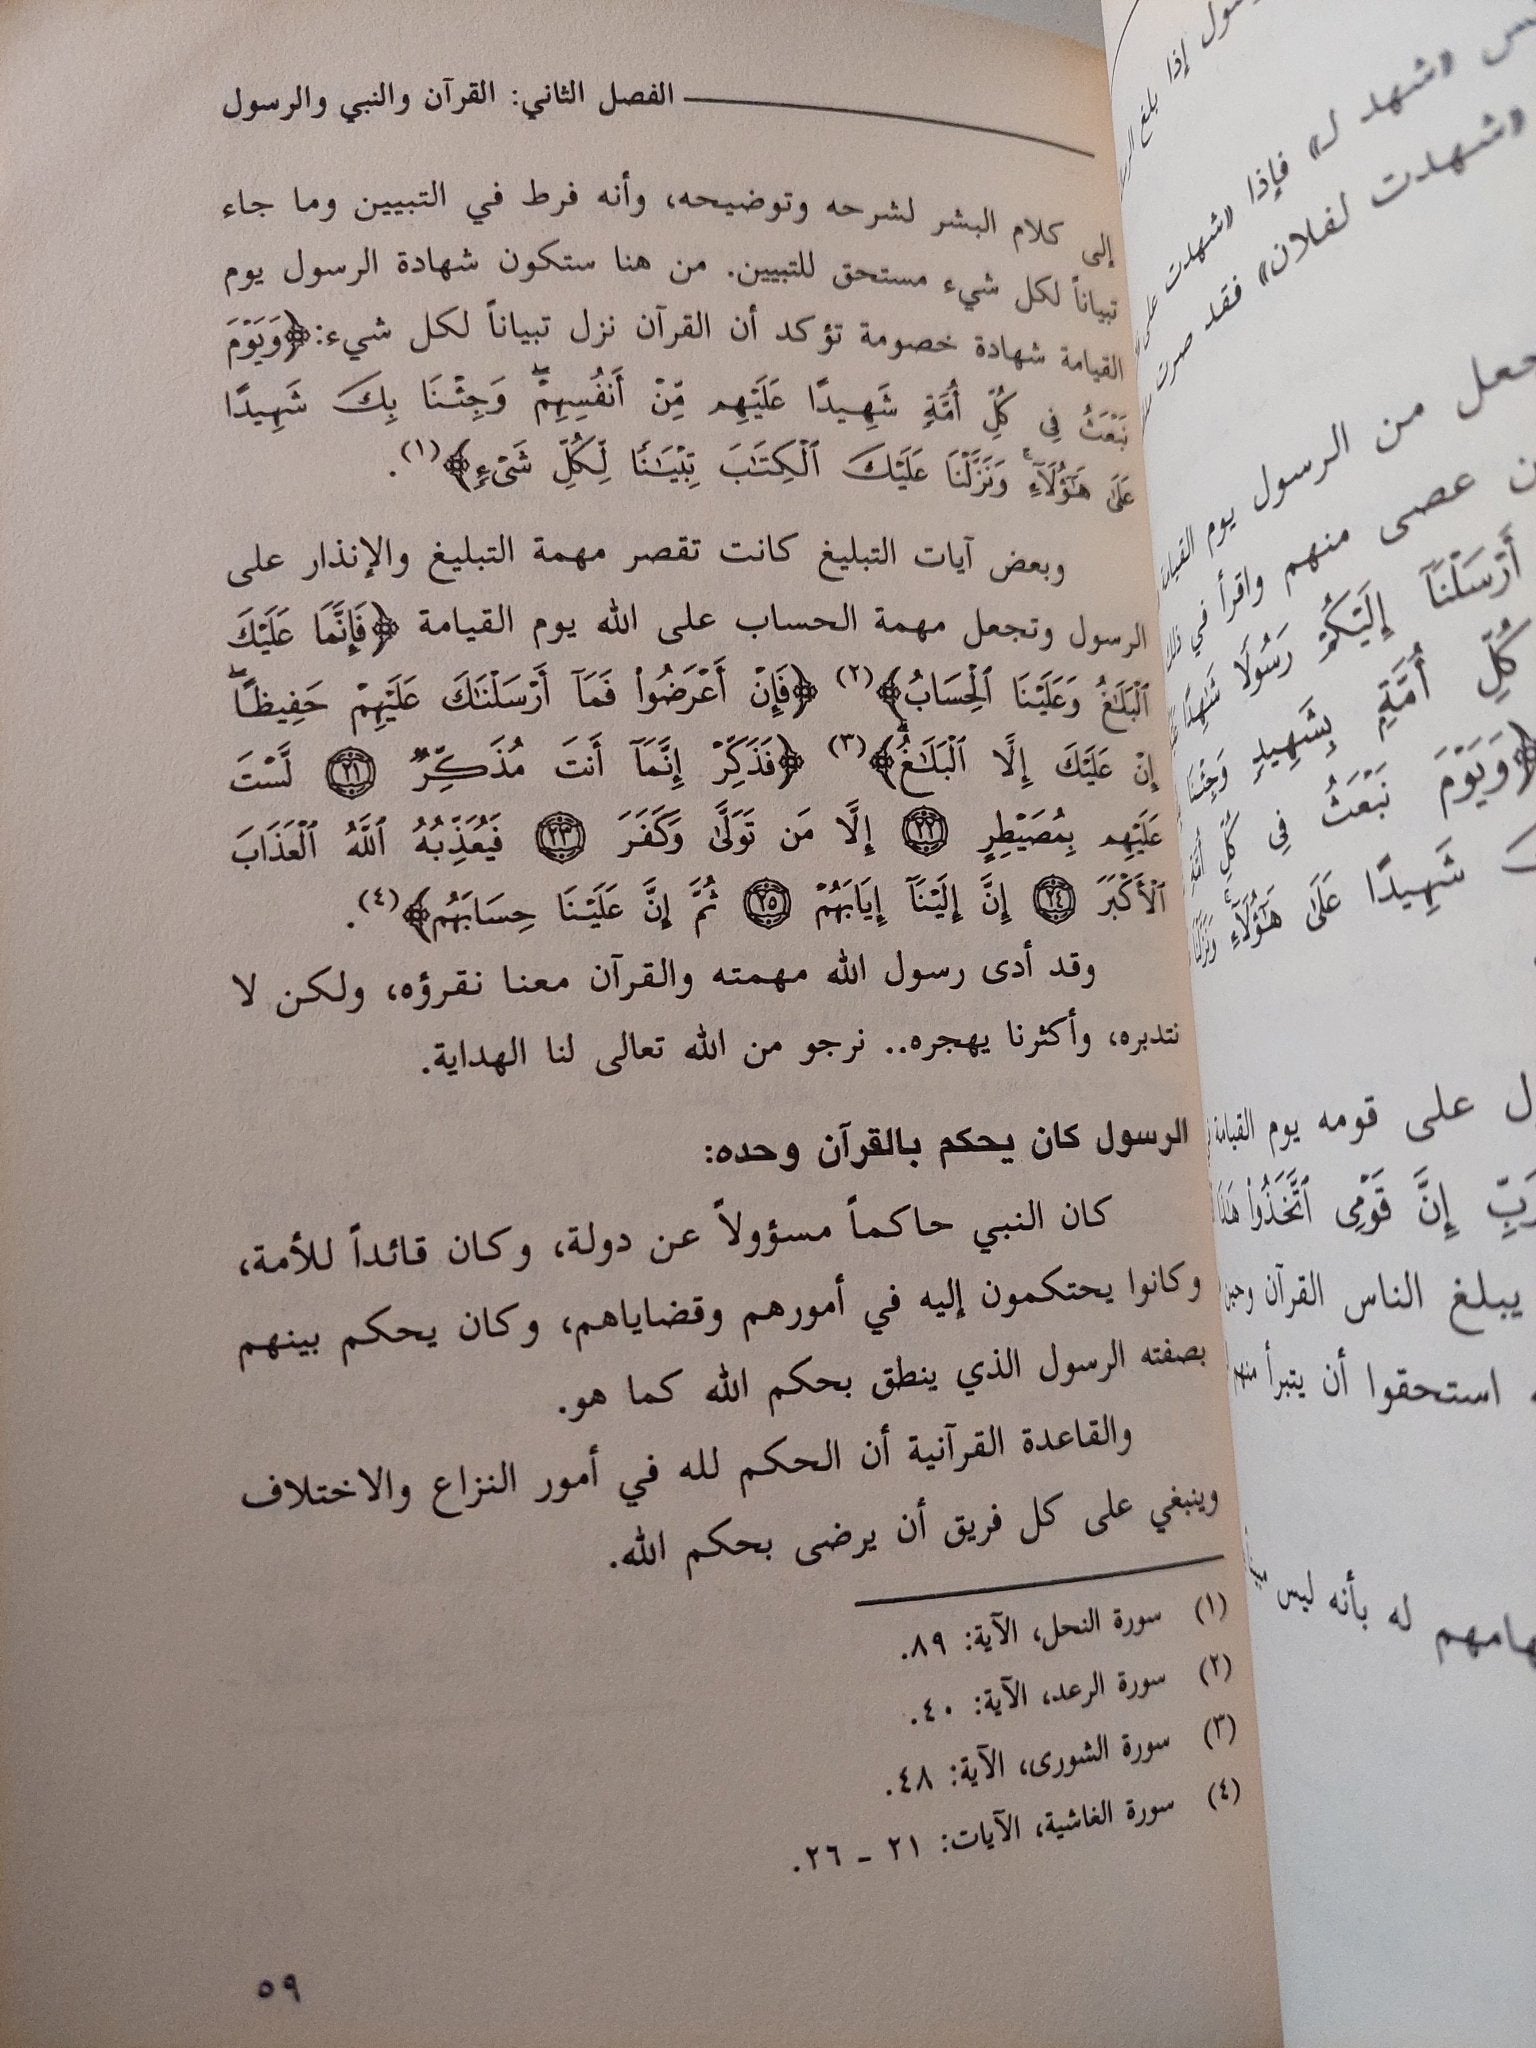 الفصل الثاني: القرآن والنبي والرسول
إلى كلام البشر لشرحه وتوضيحه، وأنه فرط في التبيين وما جاء
تبياناً لكل شيء مستحق للتبيين. من هنا ستكون شهادة الرسول يوم
القيامة شهادة خصومة تؤكد أن القرآن نزل تبياناً لكل شيء: ﴿وَيَوْمَ
نَبْعَثُ فِي كُلِّ أُمَّةٍ شَهِيدًا عَلَيْهِم مِّنْ أَنفُسِهِمْ ۖ وَجِئْنَا بِكَ شَهِيدًا
عَلَىٰ هَٰٓؤُلَآءِ ۚ وَنَزَّلْنَا عَلَيْكَ ٱلْكِتَٰبَ تِبْيَٰنًا لِّكُلِّ شَىْءٍ﴾(١).
وبعض آيات التبليغ كانت تقصر مهمة التبليغ والإنذار على
الرسول وتجعل مهمة الحساب على الله يوم القيامة ﴿فَإِنَّمَا عَلَيْكَ
ٱلْبَلَٰغُ وَعَلَيْنَا ٱلْحِسَابُ﴾(٢) ﴿فَإِنْ أَعْرَضُوا۟ فَمَآ أَرْسَلْنَٰكَ عَلَيْهِمْ حَفِيظًا ۖ
إِنْ عَلَيْكَ إِلَّا ٱلْبَلَٰغُ ۗ﴾(٣) ﴿فَذَكِّرْ إِنَّمَآ أَنتَ مُذَكِّرٌ ٢١ لَّسْتَ
عَلَيْهِم بِمُصَيْطِرٍ ٢٢ إِلَّا مَن تَوَلَّىٰ وَكَفَرَ ٢٣ فَيُعَذِّبُهُ ٱللَّهُ ٱلْعَذَابَ
ٱلْأَكْبَرَ ٢٤ إِنَّ إِلَيْنَآ إِيَابَهُمْ ٢٥ ثُمَّ إِنَّ عَلَيْنَا حِسَابَهُم﴾(٤).
وقد أدى رسول الله مهمته والقرآن معنا نقرؤه، ولكن لا
نتدبره، وأكثرنا يهجره.. نرجو من الله تعالى لنا الهداية.
الرسول كان يحكم بالقرآن وحده:
كان النبي حاكماً مسؤولاً عن دولة، وكان قائداً للأمة،
وكانوا يحتكمون إليه في أمورهم وقضاياهم، وكان يحكم بينهم
بصفته الرسول الذي ينطق بحكم الله كما هو.
والقاعدة القرآنية أن الحكم لله في أمور النزاع والاختلاف
وينبغي على كل فريق أن يرضى بحكم الله.
(١) سورة النحل، الآية: ٨٩.
(٢) سورة الرعد، الآية: ٤٠.
(٣) سورة الشورى، الآية: ٤٨.
(٤) سورة الغاشية، الآيات: ٢١ ـ ٢٦.
٥٩
إذا بلغ
«شهد لـ» فإذا «شهدت على
«شهدت لفلان» فقد صرت
من الرسول يوم القيامة
عصى منهم واقرأ في
أَرْسَلْنَآ إِلَيْكُمْ رَسُولًا شَٰهِدًا
كُلِّ أُمَّةٍ بِشَهِيدٍ وَجِئْنَا
﴿وَيَوْمَ نَبْعَثُ فِي كُلِّ أُمَّةٍ
شَهِيدًا عَلَىٰ هَٰٓؤُلَآءِ ۚ وَنَزَّلْنَا
على قومه يوم القيامة
إِنَّ قَوْمِى ٱتَّخَذُوا۟ هَٰذَا
يبلغ الناس القرآن
استحقوا أن يتبرأ منهم
له بأنه ليس